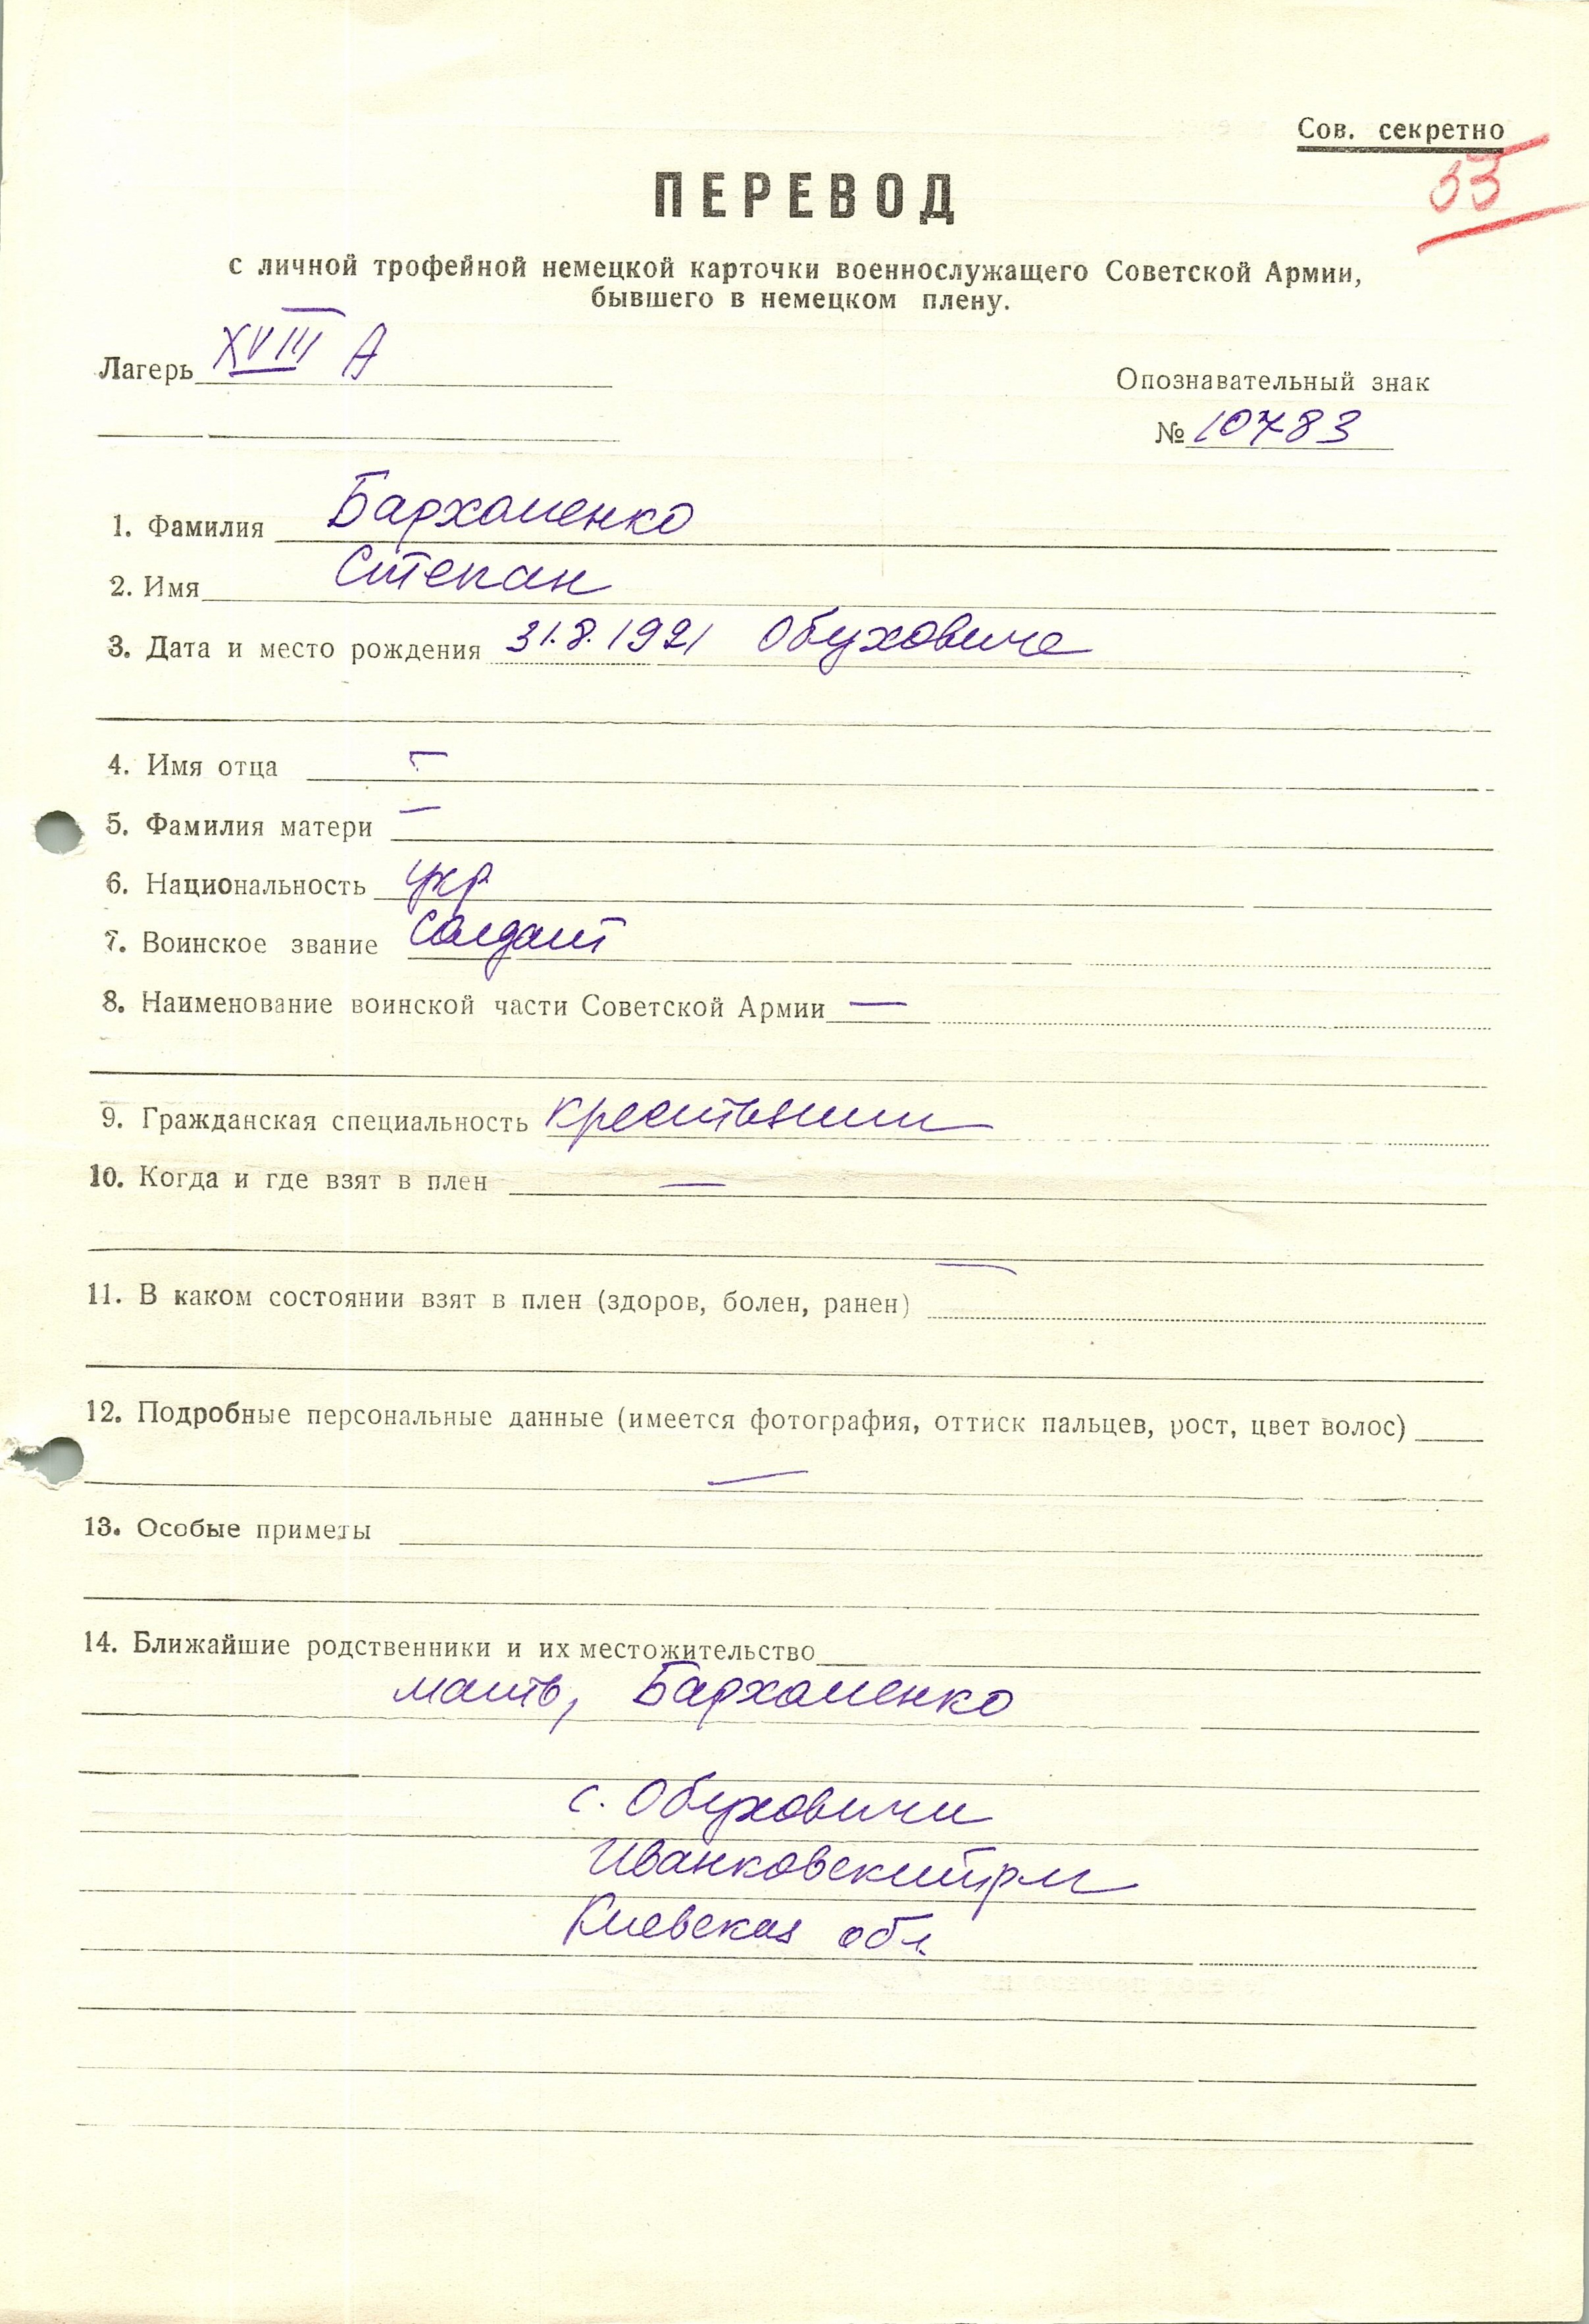 Сов. секретно
33
ПЕРЕВОД
с личной трофейной немецкой карточки военнослужащего Советской Армии,
бывшего в немецком плену.
Лагерь XVIII А
Опознавательный знак
№ 10783
1. Фамилия Бархоменко
2. Имя Степан
3. Дата и место рождения 31.8.1921 Обуховиче
4. Имя отца —
5. Фамилия матери —
6. Национальность укр
7. Воинское звание солдат
8. Наименование воинской части Советской Армии —
9. Гражданская специальность крестьянин
10. Когда и где взят в плен —
11. В каком состоянии взят в плен (здоров, болен, ранен) —
12. Подробные персональные данные (имеется фотография, оттиск пальцев, рост, цвет волос)
—
13. Особые приметы
14. Ближайшие родственники и их местожительство
мать, Бархоменко
с. Обуховичи
Иванковский рн
Киевская обл.